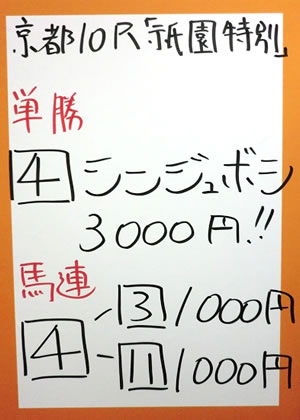 京都10R「祇園特別」
単勝
4 シンジュボシ
3000円!!
馬連
4 3 1000円
11 1000円